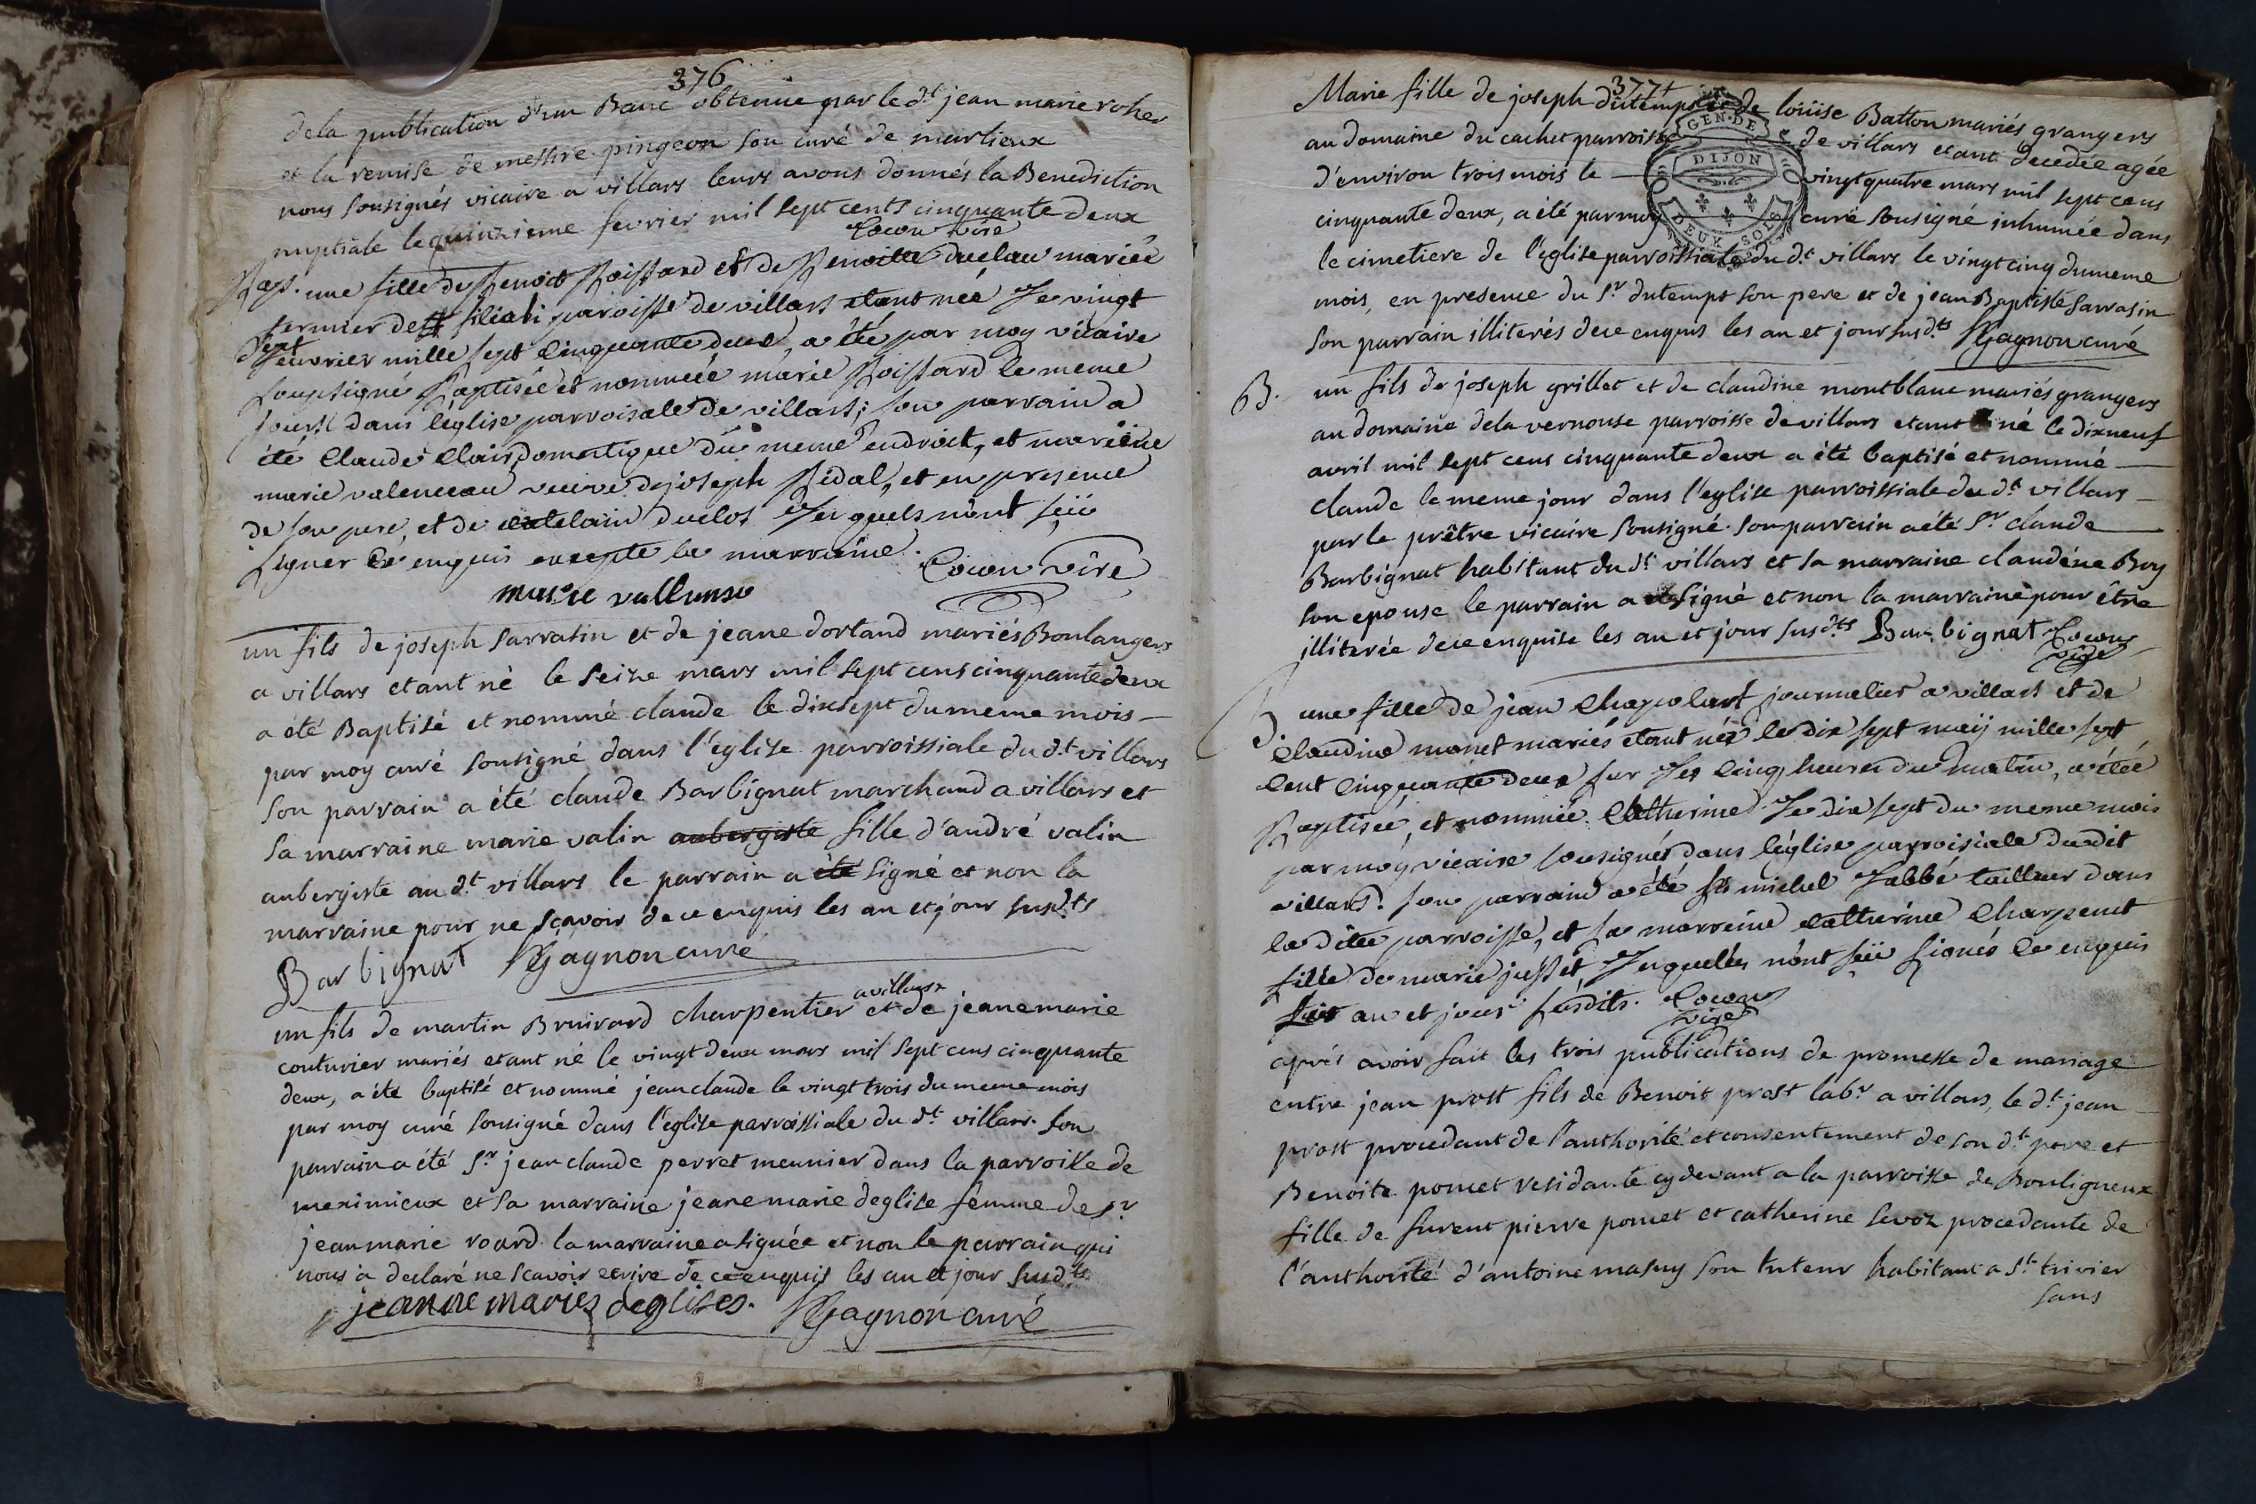 376
de la publication d'un Banc obtenue par le d.t jean marie rohes
et la remise de messire pingeon son curé de marlieux
nous sousignés vicaire a villars leurs avons donnés la Benediction
nuptiale le quinzieme fevrier mil sept cents cinquante deux
Cocon vire
Bap. une fille de Benoit Boissard et de Benoitte duclau mariée
fermier de filiabi paroisse de villars etant neé Le vingt
Sept feuvrier mille sept Cinquante deux, a été par moy vicaire
soupsigné Baptisée et nommeé marie Boissard le meme
jour dans léglise parroisale de villars; son parrain a
été Claude Clair domestique du meme endroit, et mareine
marie valenceau veuive de joseph Bidal, et en presence
de son pere, et de duclos Lesquels n'ont sçu
signer de enquis excepte la marraine. Cocon vire
marie vallenso
un fils de joseph sarrasin et de jeane dortand mariés Boulangers
a villars etant né le seize mars mil sept cens cinquante deux
a été Baptisé et nommé claude le dixsept du meme mois –
par moy curé sousigné dans l'eglise parroissiale du d.t villars
son parrain a été claude Barbignat marchand a villars et
sa marraine marie valin aubergiste fille d'andré valin
aubergiste au d.t villars le parrain a été signé et non la
marraine pour ne scavoir de ce enquis les an et jour susd.ts
Barbignat Gagnon curé
un fils de martin Bruirard charpentier a villars et de jeane marie
couturier mariés etant né le vingt deux mars mil sept cens cinquante
deux, a été baptisé et nommé jean claude le vingt trois du meme mois
par moy curé sousigné dans l'eglise parroissiale du d.t villars son
parrain a été s.r jean claude perret meunier dans la parroisse de
meximieux et sa marraine jeane marie deglise femme de s.r
jean marie roard la marraine a signée et non le parrain qui
nous a declaré ne scavoir ecrire de ce enquis les an et jour susd.ts
jeanne maries deglises. Gagnon curé
377
Marie fille de joseph dutemps et de loüise Batton mariés grangers
au domaine du cachet parroisse de villars etant decedée agée
d'environ trois mois le — vingt quatre mars mil sept cens
cinquante deux, a été par moy curé sousigné inhumée dans
le cimetiere de l'église parroissiale du d.t villars le vingt cinq du meme
mois, en presence du s.r dutemps son pere et de jean Baptiste sarrasin
son parrain illiterés de ce enquis les an et jour susd.ts Gagnon curé
GEN. DE
DIJON
DEUX SOLS
B. un fils de joseph grillet et de claudine montblanc mariés grangers
au domaine de la vernouse parroisse de villars etant né le dixneuf
avril mil sept cens cinquante deux a été baptisé et nommé —
claude le meme jour dans l'eglise parroissiale du d.t villars –
par le prêtre vicaire sousigné son parrain a été s.r claude
Barbignat habitant du d.t villars et sa marraine claudéne Boy
son epouse le parrain a signé et non la marraine pour être
illiterée de ce enquise les an et jour susd.ts Barbignat Cocon
vire
B. une fille de jean Chapolart journalier a villars et de
Claudine monet mariés etant née le dix sept maij mille sept
Cent Cinquante deux sur Les Cinq heures du matin, a étéé
Baptiseé, et nommée Catherine Le dix sept du meme mois
par moy vicaire sousignés dans l'église parroisiale dudit
villars. son parrain a été michel Labbé tailleur dans
la ditte parroisse, et sa marreine Catherine Charpenet
fille de marie jusset Lesquelles n'ont sçü signés de enquis
Les an et jour susdits. Cocon
vire
aprés avoir fait les trois publications de promesse de mariage
entre jean prost fils de Benoit prost lab.r a villars, le d.t jean
prost procedant de l'authorité et consentement de son d.t pere et
Benoite poncet residante cy devant a la parroisse de Bouligneux
fille de furent pierre poncet et catherine sevoz procedante de
l'authorité d'antoine masuy son tuteur habitant a S.t trivier
sans